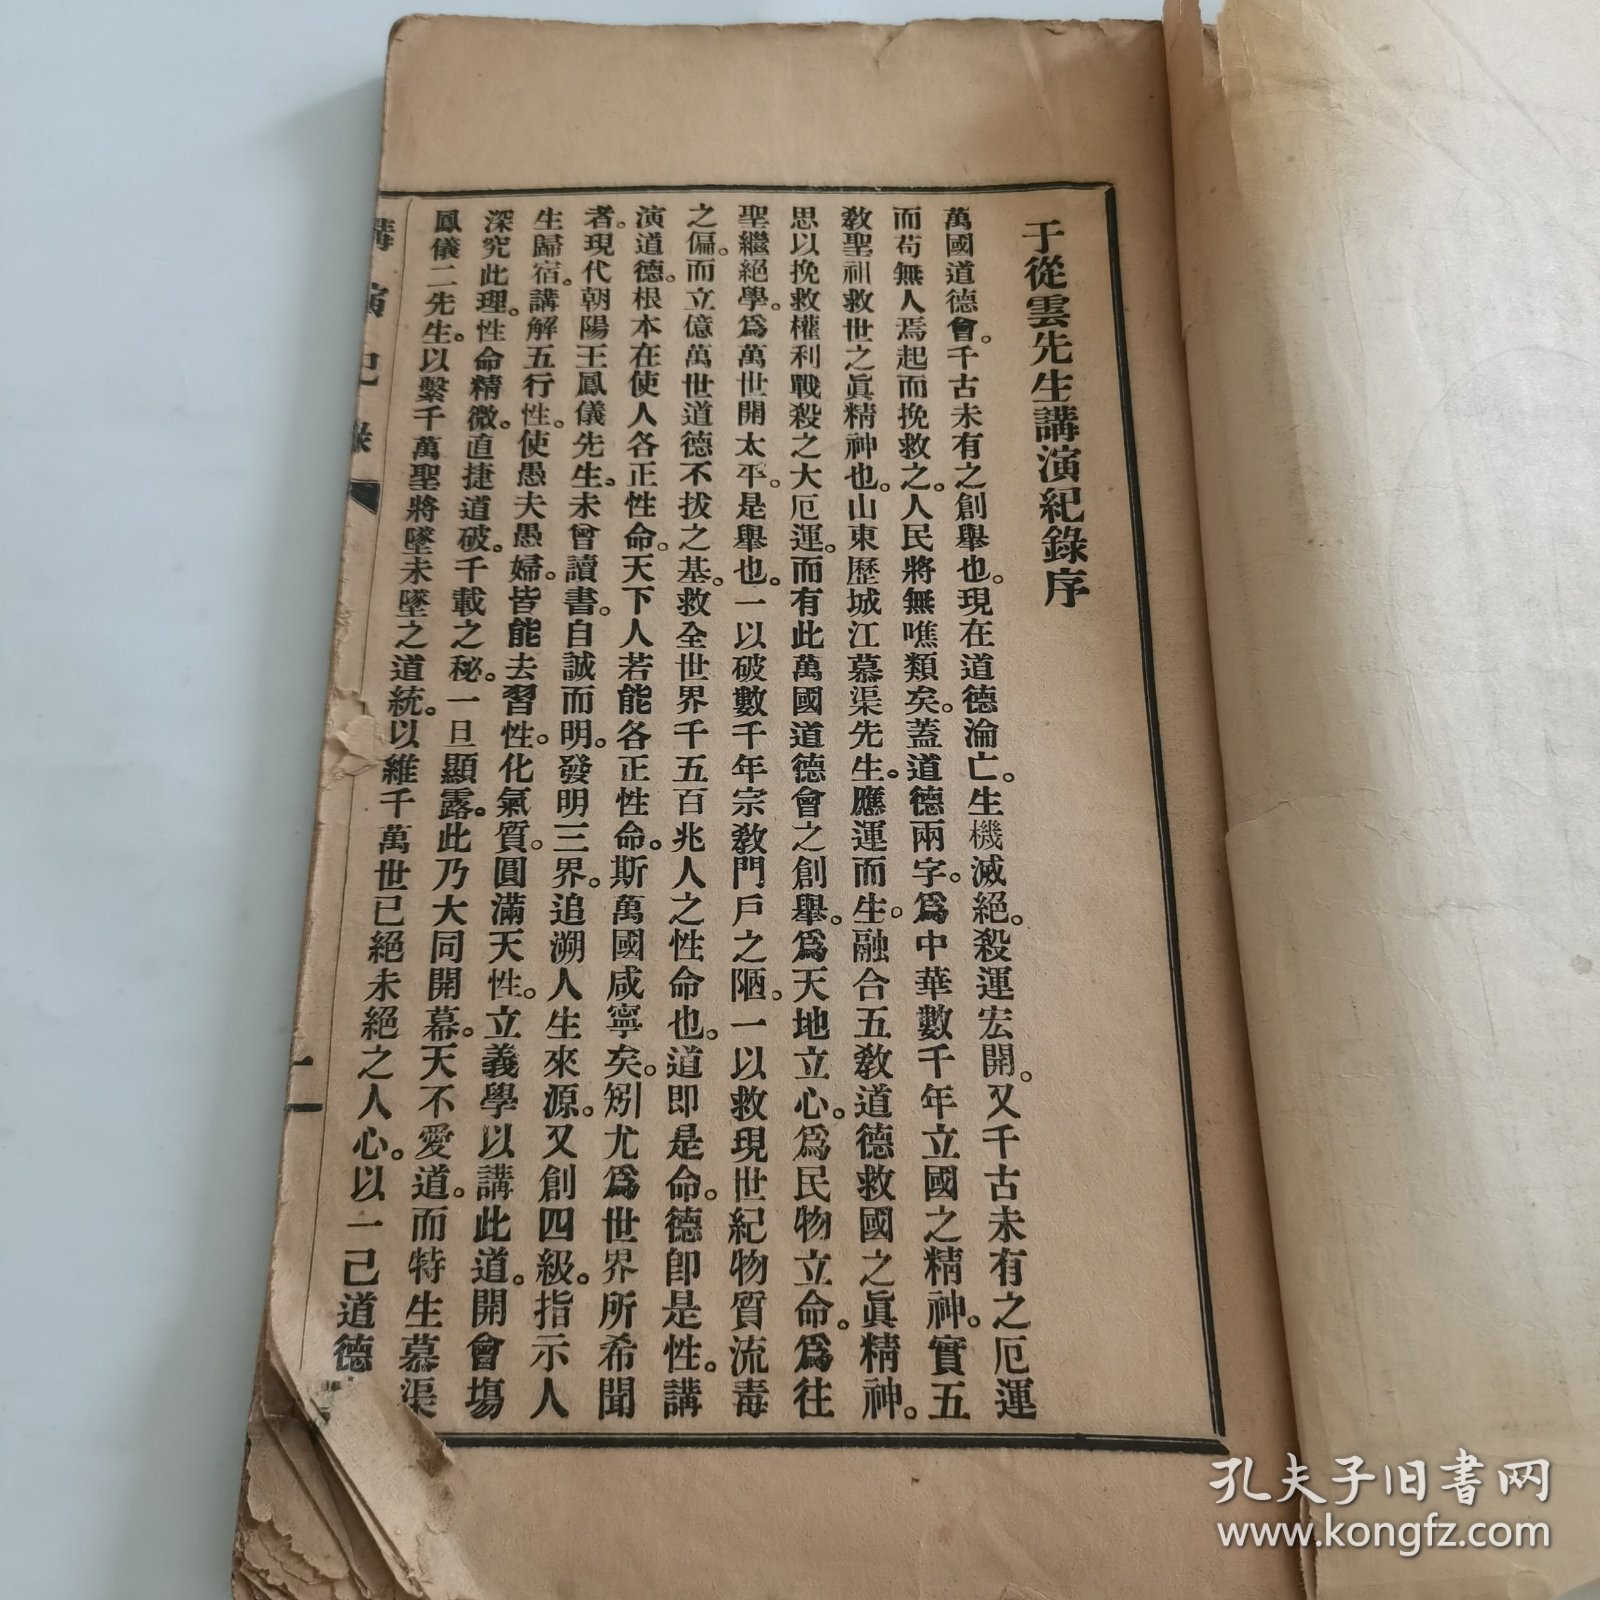 于從雲先生講演紀錄序
萬國道德會。千古未有之創舉也。現在道德淪亡。生機滅絕。殺運宏開。又千古未有之厄運
而苟無人焉起而挽救之。人民將無噍類矣。蓋道德兩字。爲中華數千年立國之精神。實五
敎聖祖救世之眞精神也。山東歷城江慕渠先生。應運而生。融合五敎道德救國之眞精神。
思以挽救權利戰殺之大厄運。而有此萬國道德會之創舉。爲天地立心。爲民物立命。爲往
聖繼絕學。爲萬世開太平。是舉也。一以破數千年宗敎門戶之陋。一以救現世紀物質流毒
之偏。而立億萬世道德不拔之基。救全世界千五百兆人之性命也。道即是命。德卽是性。講
演道德。根本在使人各正性命。天下人若能各正性命。斯萬國咸寧矣。矧尤爲世界所希聞
者。現代朝陽王鳳儀先生。未曾讀書。自誠而明。發明三界。追溯人生來源。又創四級。指示人
生歸宿。講解五行性。使愚夫愚婦。皆能去習性。化氣質。圓滿天性。立義學以講此道。開會塲
深究此理。性命精微。直捷道破。千載之秘。一旦顯露。此乃大同開幕。天不愛道。而特生慕渠
鳳儀二先生。以繫千萬聖將墜未墜之道統。以維千萬世已絕未絕之人心。以一己道德
講演紀錄
一
孔夫子旧书网
www.kongfz.com